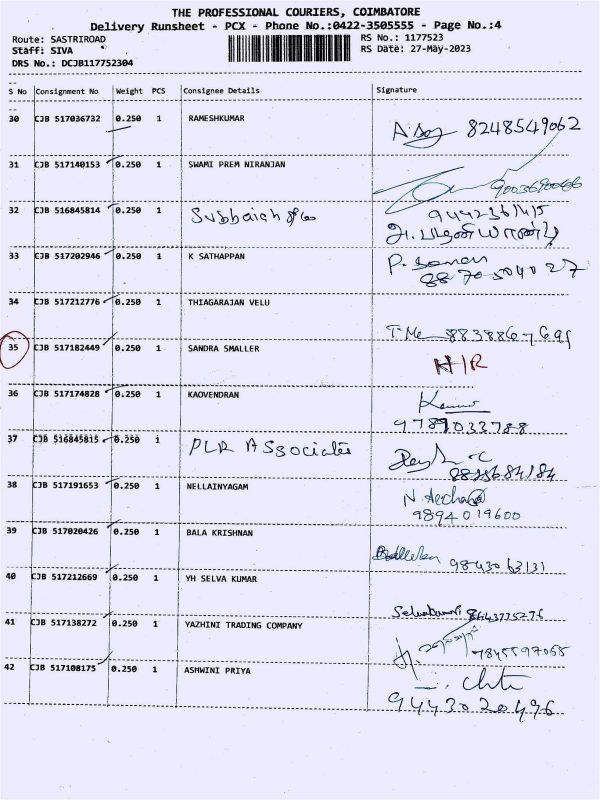 THE PROFESSIONAL COURIERS, COIMBATORE
Delivery Runsheet - PCX - Phone No.:0422-3505555 - Page No.:4
Route: SASTRIROAD RS No.: 1177523
Staff: SIVA RS Date: 27-May-2023
DRS No.: DCJB117752304
S No Consignment No Weight PCS Consignee Details Signature
30 CJB 517036732 0.250 1 RAMESHKUMAR 8248549062
31 CJB 517140153 0.250 1 SWAMI PREM NIRANJAN
32 CJB 516845814 0.250 1
33 CJB 517202946 0.250 1 K SATHAPPAN P.
34 CJB 517212776 0.250 1 THIAGARAJAN VELU
35 CJB 517182449 0.250 1 SANDRA SMALLER H/R
36 CJB 517174828 0.250 1 KAOVENDRAN
9789033788
37 CJB 516845815 0.250 1 PLR Associates
38 CJB 517191653 0.250 1 NELLAINYAGAM
9894019600
39 CJB 517020426 0.250 1 BALA KRISHNAN 9843063131
40 CJB 517212669 0.250 1 YH SELVA KUMAR
41 CJB 517138272 0.250 1 YAZHINI TRADING COMPANY 7845597055
42 CJB 517108175 0.250 1 ASHWINI PRIYA
9443020496